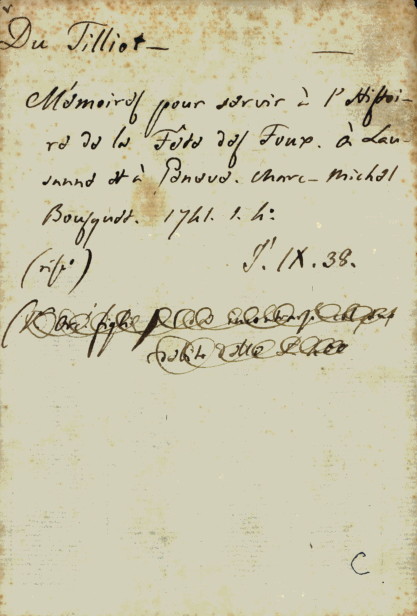 Du Tilliot —
Mémoires pour servir à l'Histoi-
re de la Fête des Foux. à Lau-
sanne et à Genève. Marc-Michel
Bousquet. 1741. 1. 4°:
(rise)
J. IX. 38.
C